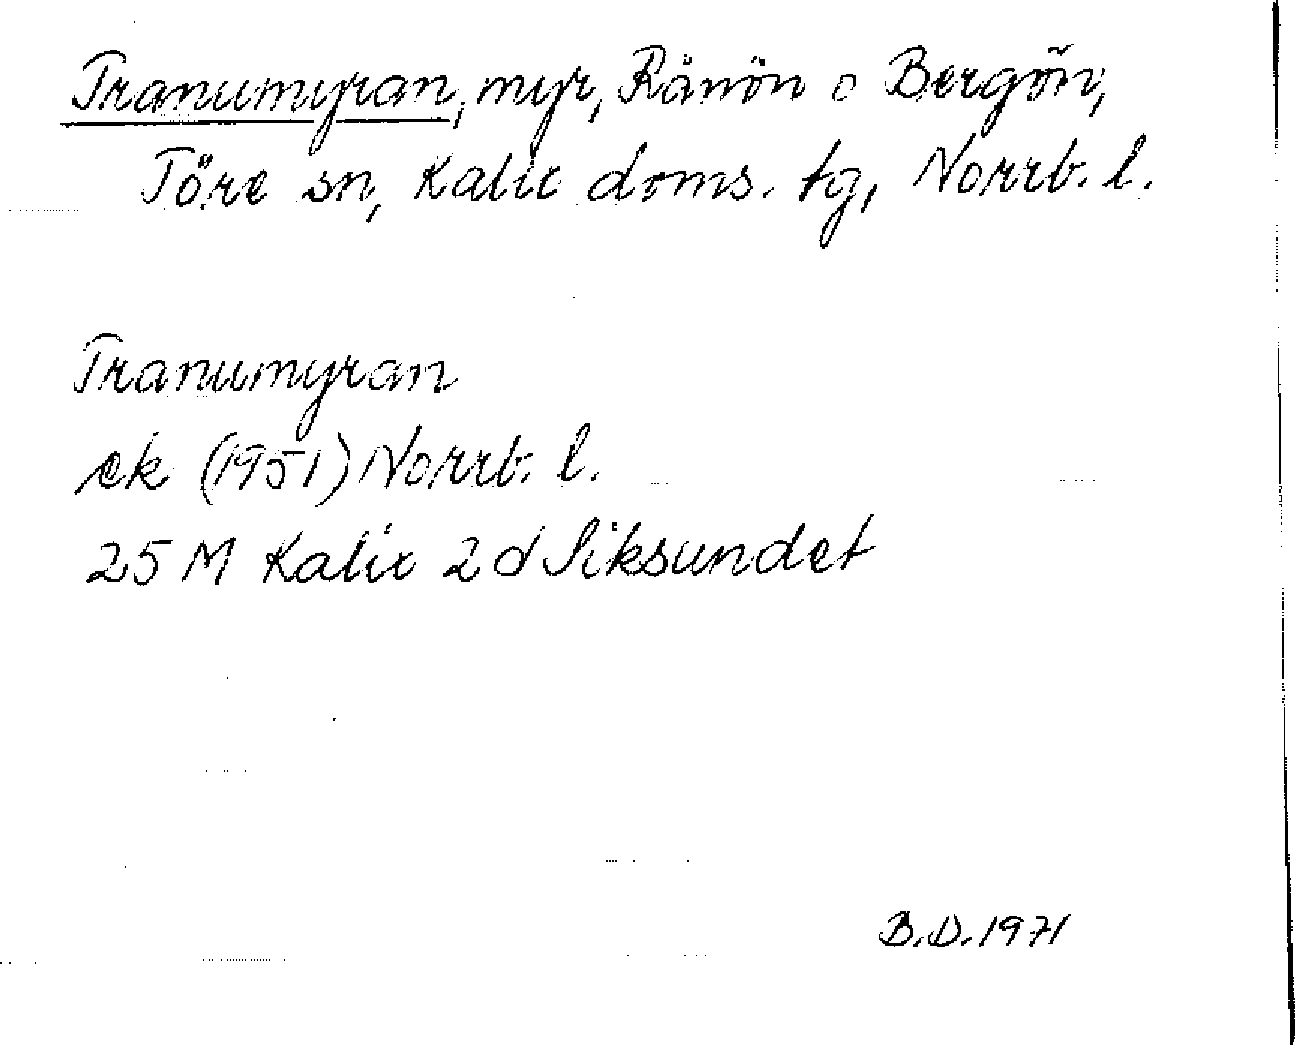 Tranumyran, myr, Rånön o Bergön,
Töre sn, Kalix doms. tg, Norrb. l.
Tranumyran
ek (1951) Norrb. l.
25 M Kalix 2d Siksundet
B.D. 1971